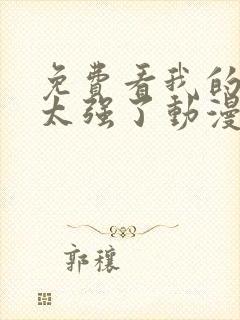 免费看我的
太强了动漫
郭穰